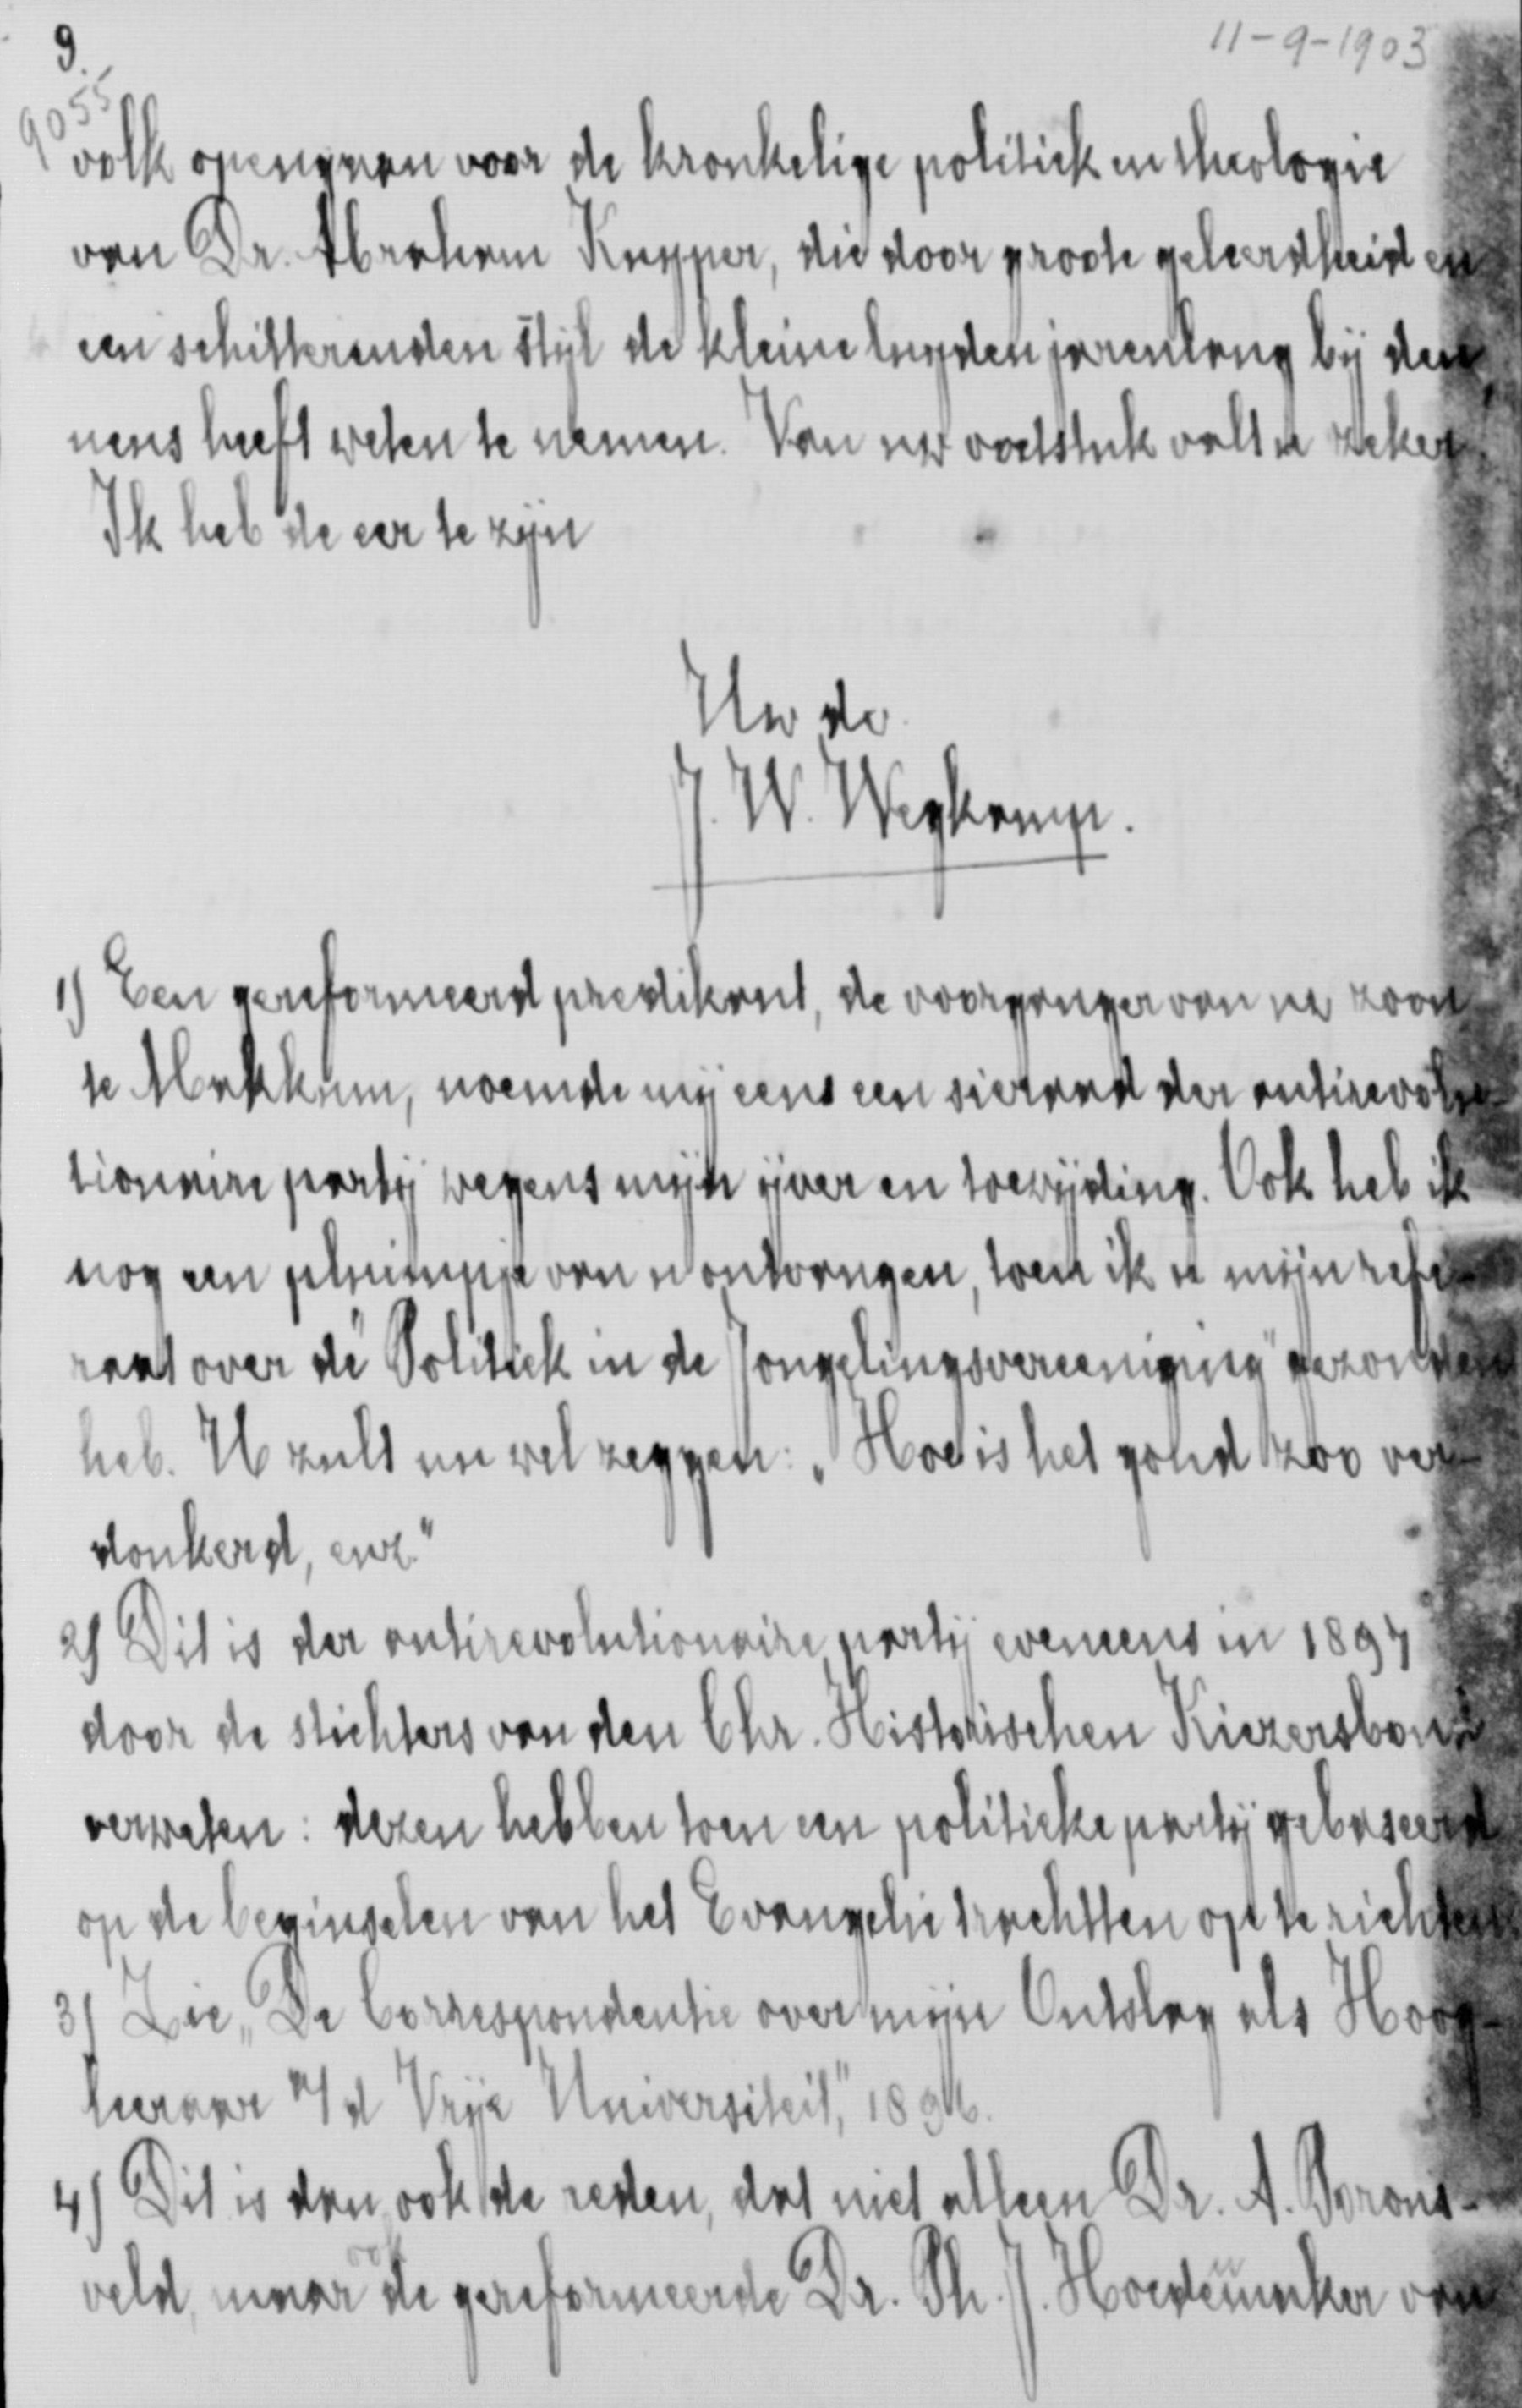 9.
11-9-1903
9055
volk opengaan voor de kronkelige politiek en theologie
van Dr. Abraham Kuyper, die door groote geleerdheid en
een schitterenden stijl de kleine luyden jarenlang bij den
neus heeft weten te nemen. Van uw voetstuk valt u zeker.
Ik heb de eer te zijn
Uw dv.
J. W. Wegkamp.
1) Een gereformeerd predikant, de voorganger van uw zoon
te Makkum, noemde mij eens een sieraad der antirevolu-
tionnaire partij wegens mijn ijver en toewijding. Ook heb ik
nog een pluimpje van u ontvangen, toen ik u mijn refe-
raat over de "Politiek in de Jongelingsvereeniging" gezonden
heb. U zult nu wel zeggen: „Hoe is het goud zoo ver-
donkerd, enz."
2) Dit is der antirevolutionaire partij eveneens in 1897
door de stichters van den Chr. Historischen Kiezersbond
verweten: dezen hebben toen een politieke partij gebaseerd
op de beginselen van het Evangelie trachtten op te richten.
3) Zie „De Correspondentie over mijn Ontslag als Hoog-
leeraar a/d Vrije Universiteit," 1896.
4) Dit is dan ook de reden, dat niet alleen Dr. A. Brons-
veld, maar ook de gereformeerde Dr. Ph. J. Hoedemaker van